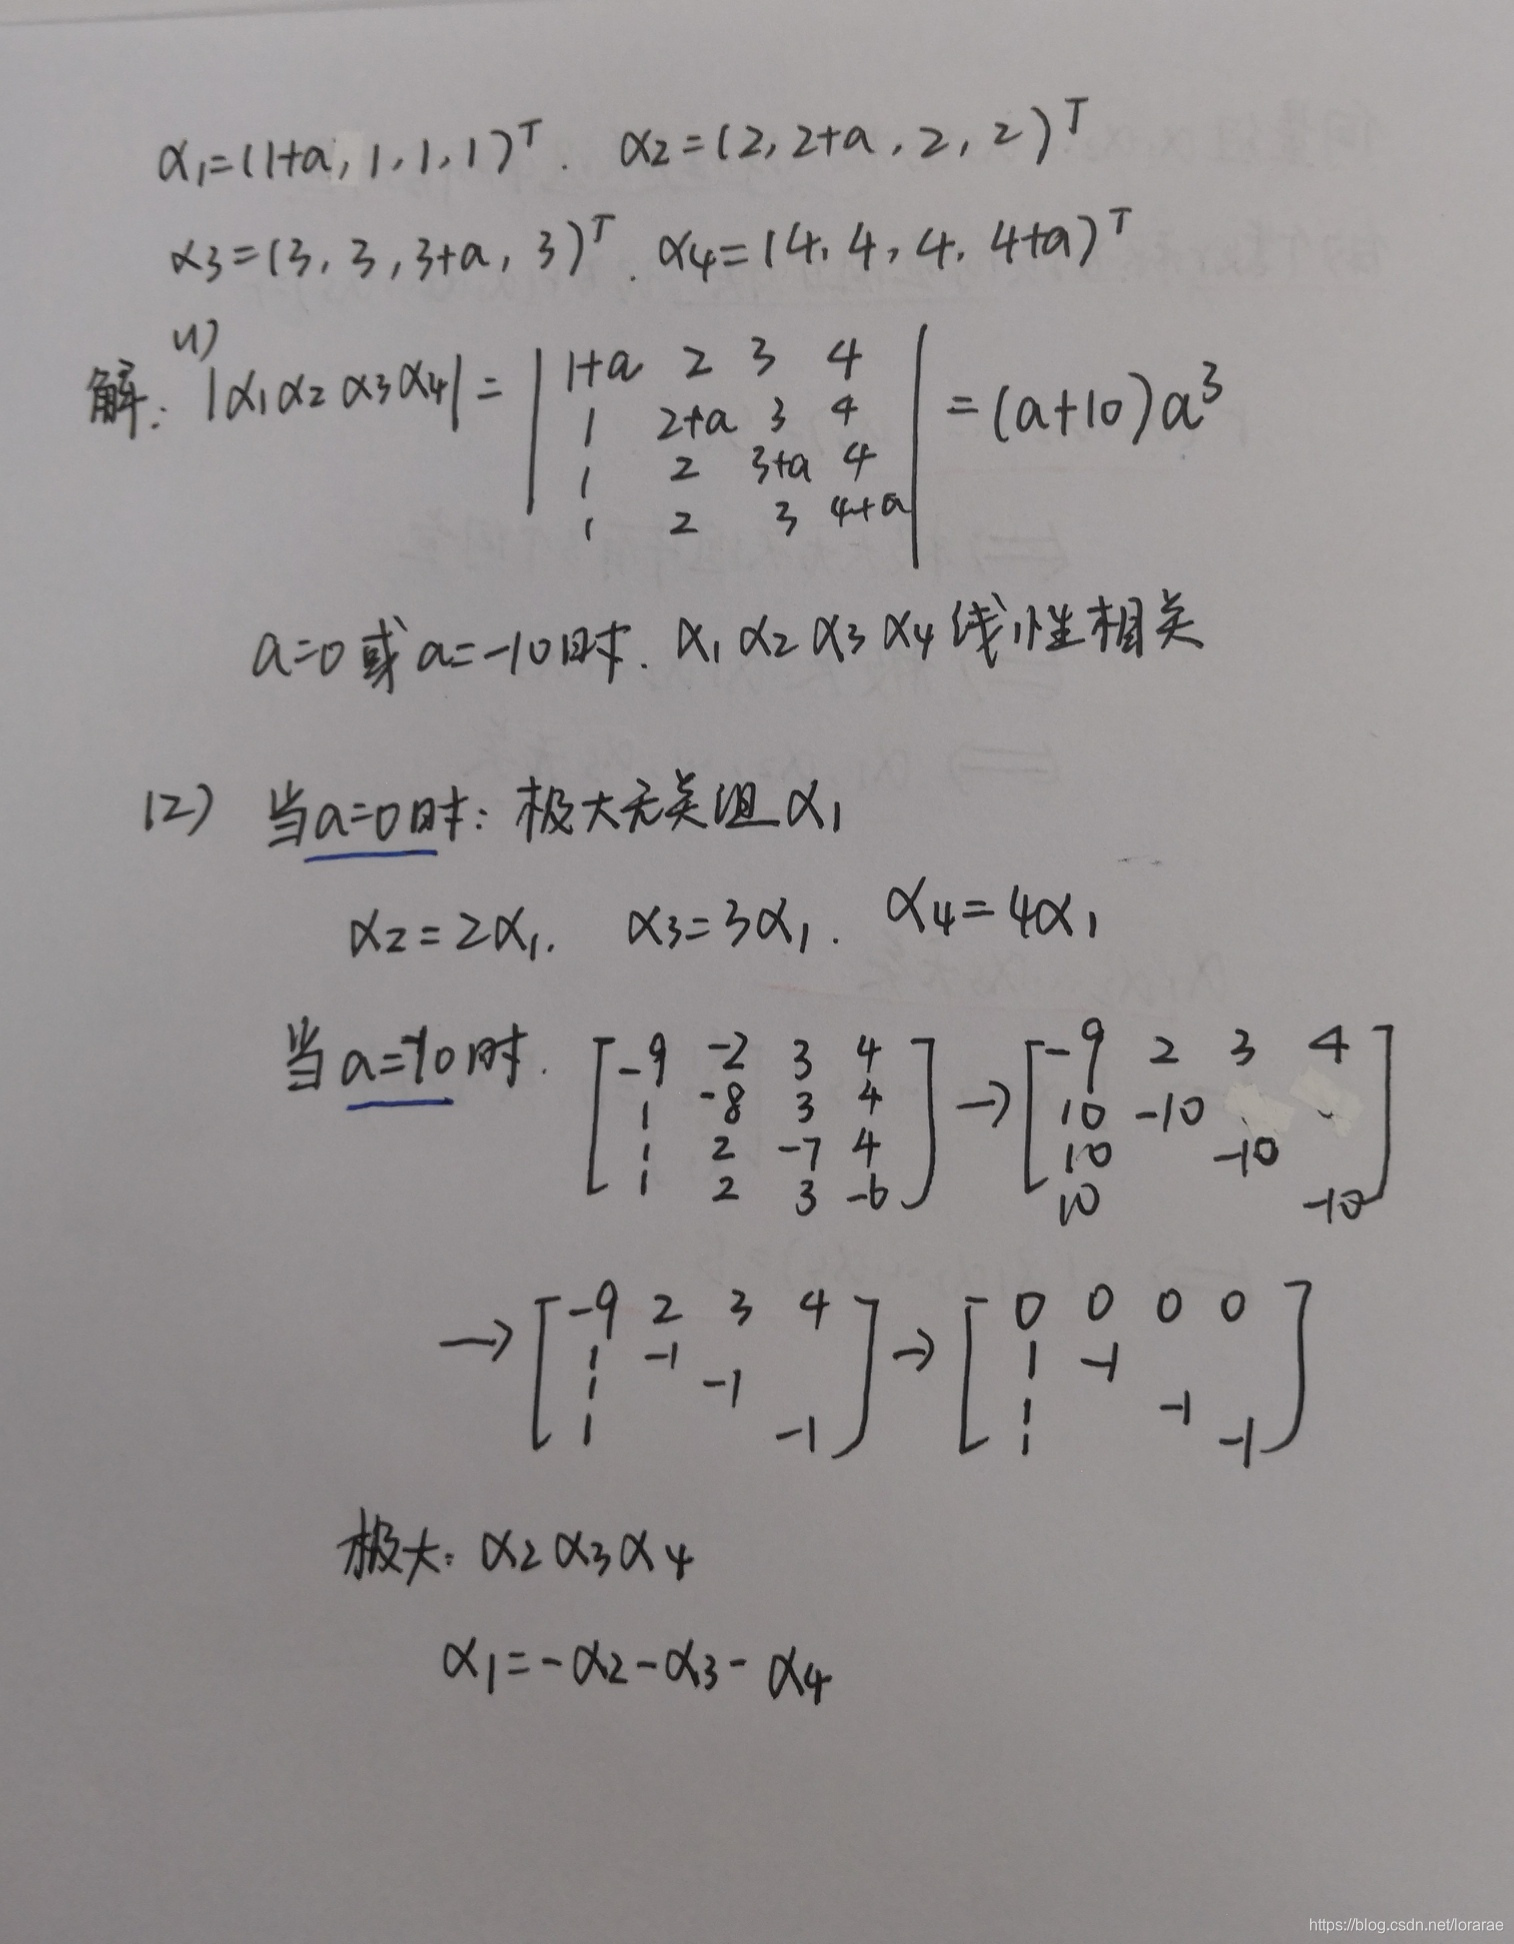 α₁=(1+a, 1, 1, 1)ᵀ. α₂=(2, 2+a, 2, 2)ᵀ
α₃=(3, 3, 3+a, 3)ᵀ. α₄=(4, 4, 4, 4+a)ᵀ
(1)
解: |α₁ α₂ α₃ α₄| = | 1+a 2 3 4 | = (a+10)a³
1 2+a 3 4
1 2 3+a 4
1 2 3 4+a
a=0或a=-10时. α₁ α₂ α₃ α₄ 线性相关
(2) 当a=0时: 极大无关组α₁
α₂=2α₁. α₃=3α₁. α₄=4α₁
当a=-10时. [ -9 -2 3 4 ] → [ -9 2 3 4 ]
1 -8 3 4 10 -10
1 2 -7 4 10 -10
1 2 3 -6 10 -10
→ [ -9 2 3 4 ] → [ 0 0 0 0 ]
1 -1 1 -1
1 -1 1 -1
1 -1 1 -1
极大: α₂ α₃ α₄
α₁=-α₂-α₃-α₄
https://blog.csdn.net/lorarae